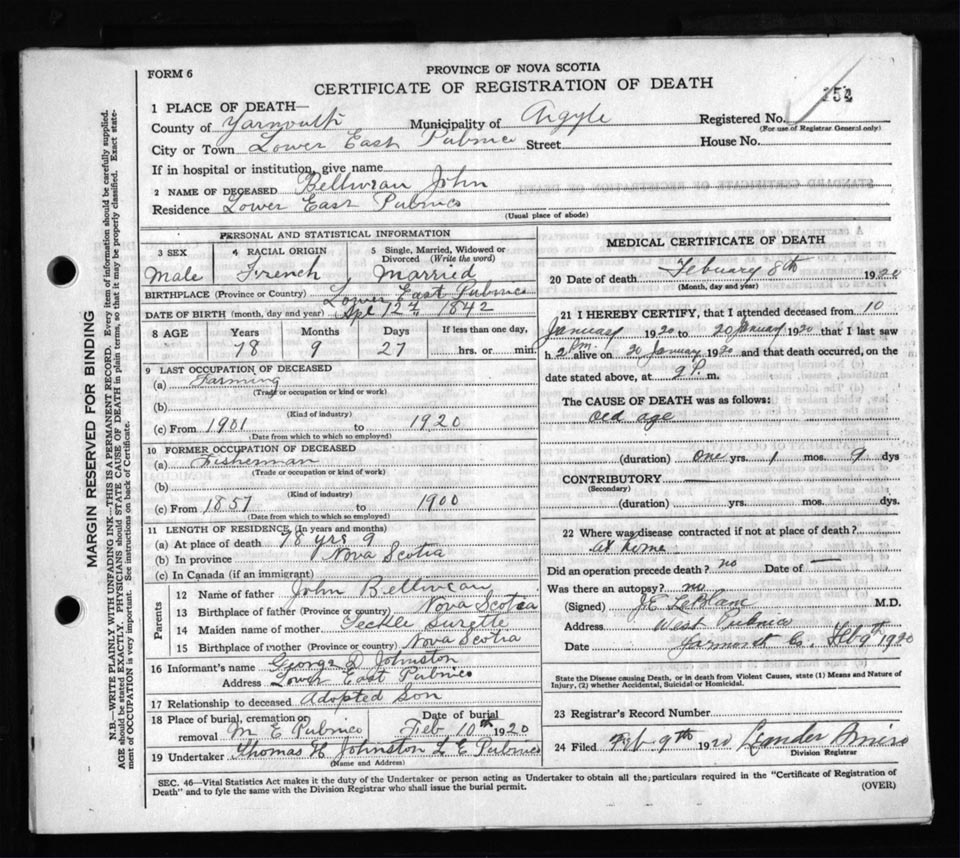 PROVINCE OF NOVA SCOTIA
FORM 6
CERTIFICATE OF REGISTRATION OF DEATH
1 PLACE OF DEATH—
County of Yarmouth Municipality of Argyle Registered No.
(For use of Registrar General only)
City or Town Lower East Pubnico Street House No.
If in hospital or institution, give name
2 NAME OF DECEASED Belliveau John
Residence Lower East Pubnico
(Usual place of abode)
PERSONAL AND STATISTICAL INFORMATION
3 SEX 4 RACIAL ORIGIN 5 Single, Married, Widowed or Divorced (Write the word)
Male French Married
BIRTHPLACE (Province or Country) Lower East Pubnico
DATE OF BIRTH (month, day and year) 12th 1842
8 AGE Years Months Days If less than one day,
78 9 27 hrs. or min.
9 LAST OCCUPATION OF DECEASED
(a) Farming
(Trade or occupation or kind or work)
(b)
(Kind of industry)
(c) From 1901 to 1920
(Date from which to which so employed)
10 FORMER OCCUPATION OF DECEASED
(a) Fisherman
(Trade or occupation or kind of work)
(b)
(Kind of industry)
(c) From 1857 to 1900
(Date from which to which so employed)
11 LENGTH OF RESIDENCE (In years and months)
(a) At place of death 78 yrs 9
(b) In province Nova Scotia
(c) In Canada (if an immigrant)
Parents
12 Name of father John Belliveau
13 Birthplace of father (Province or country) Nova Scotia
14 Maiden name of mother Surette
15 Birthplace of mother (Province or country) Nova Scotia
16 Informant's name George D Johnston
Address Lower East Pubnico
17 Relationship to deceased Adopted Son
18 Place of burial, cremation or removal M E Pubnico Date of burial Feb 10th 1920
19 Undertaker Thomas H Johnston L E Pubnico
(Name and Address)
MEDICAL CERTIFICATE OF DEATH
20 Date of death Febuary 8th 1920
(Month, day and year)
21 I HEREBY CERTIFY, that I attended deceased from 10
January 1920 to 20 January 1920 that I last saw
h alive on 20 January 1920 and that death occurred, on the
date stated above, at 9 P. m.
The CAUSE OF DEATH was as follows:
old age
(duration) one yrs. 1 mos. 9 dys
CONTRIBUTORY —
(Secondary)
(duration) yrs. mos. dys.
22 Where was disease contracted if not at place of death?
at home
Did an operation precede death? no Date of —
Was there an autopsy? no
(Signed) J E LeBlanc M.D.
Address West Pubnico
Date Yarmouth Co, Feb 9th 1920
State the Disease causing Death, or in death from Violent Causes, state (1) Means and Nature of
Injury, (2) whether Accidental, Suicidal or Homicidal.
23 Registrar's Record Number
24 Filed Feb 9th 1920 Leander Amiro
Division Registrar
SEC. 46—Vital Statistics Act makes it the duty of the Undertaker or person acting as Undertaker to obtain all the particulars required in the "Certificate of Registration of
Death" and to fyle the same with the Division Registrar who shall issue the burial permit.
(OVER)
MARGIN RESERVED FOR BINDING
N.B.—WRITE PLAINLY WITH UNFADING INK—THIS IS A PERMANENT RECORD. Every item of information should be carefully supplied.
AGE should be stated EXACTLY. PHYSICIANS should STATE CAUSE OF DEATH in plain terms, so that it may be properly classified. Exact state-
ment of OCCUPATION is very important. See instructions on back of Certificate.